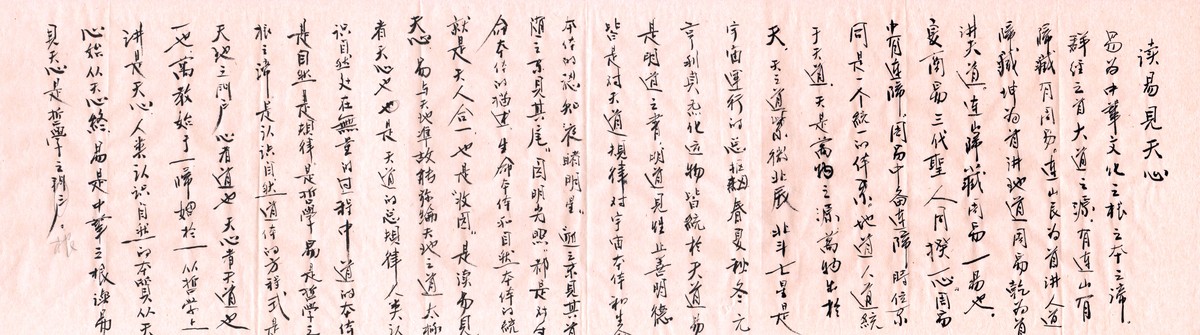 读易见天心
易为中华文化之根之本之蒂
群经之首大道之源有连山有
归藏有周易连山艮为首讲人道
归藏坤为首讲地道周易乾为首
讲天道连山归藏周易一易也
夏商易三代圣人同揆一心周易
中有连归周易中备连归时位系
同是一个统一的体系地道人道统
于天道天是万物之源万物生于
天天之道紫微北辰北斗七星是
宇宙运行的总枢纽春夏秋冬元
亨利贞元化造物皆统于天道易
是明道之书明道见性止善明德
皆是对天道规律对宇宙本体和生
本体的认知夜睹明星
随之亲见其底因明光照都是
命本体的描述生命本体和自然本体的统
就是天人合一也是收圆是读易见
天心易与天地准故能弥纶天地之道太极
者天心也也是天道的总规律人类认
识自然处在無量的过程中道的本体
是自然是规律是哲学易是哲学之
根之谛是认识自然道体的方程式是
天地之门户心有道也天心者天道也
一也万教始于一归姻于一从哲学上
讲是天心人来认识自然的本质从天
心始从天心终易是中华之根读易
见天心是哲学之门户
根